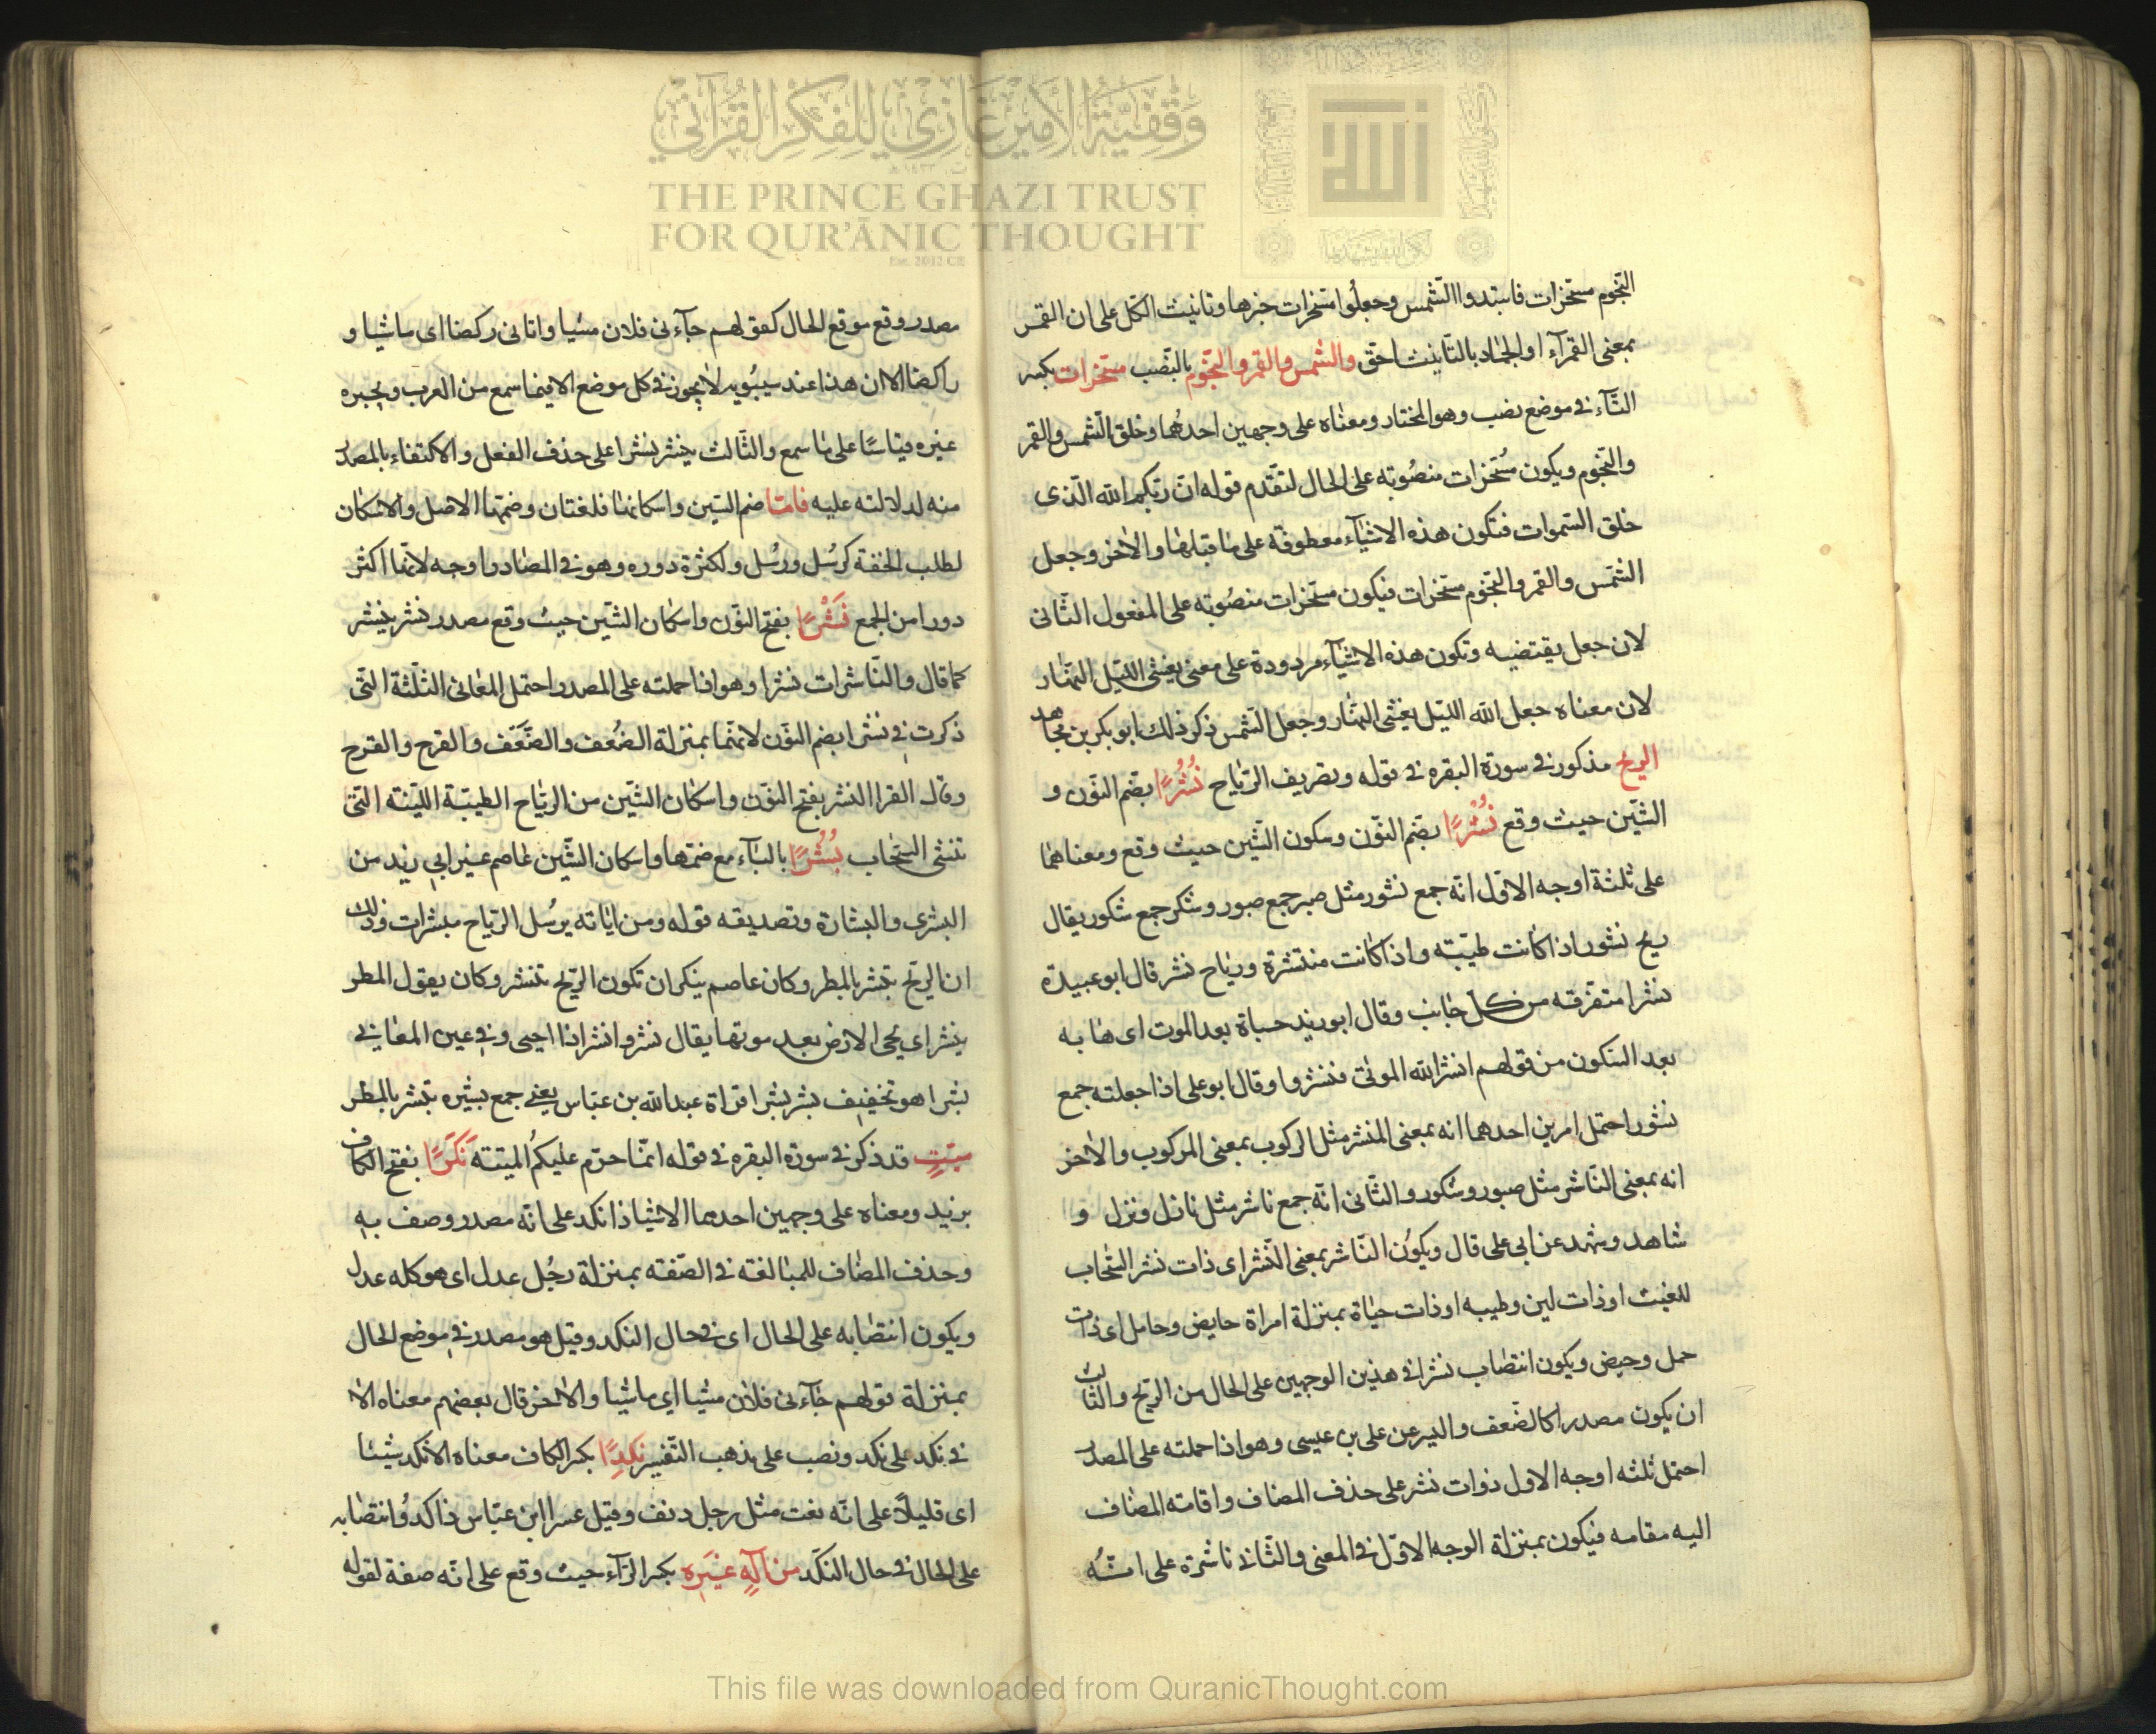 وقفية الأمير غازي للفكر القرآني
THE PRINCE GHAZI TRUST
FOR QUR'ĀNIC THOUGHT
Est. 2012 CE
النّجوم مسخرات فابتدوا الشّمس وجعلوا مسخرات خبرها وتانيث الكل على ان القمر
بمعنى القمرآء او الجماد بالتّانيث احقّ والشمس والقمر والنّجوم بالنّصب مسخّرات بكسر
التّآء في موضع نصب وهو المختار ومعناه على وجهين احدهما وخلق الشّمس والقمر
والنّجوم ويكون مُسخرات منصُوبة على الحال لتقدّم قوله انّ ربّكم الله الّذى
خلق السّموات فتكون هذه الاشيآء معطوفة على ما قبلها والاخر وجعل
الشّمس والقمر والنّجوم مسّخرات فيكون مسّخرات منصُوبة على المفعول الثّانى
لان جعل يقتضيه وتكون هذه الاشيآء مردودة على معنى يغشى اللّيل النّهار
لان معناه جعل الله اللّيل يغشى النّهار وجعل الشّمس ذكر ذلك ابو بكر بن مجاهد
الريح مذكور في سورة البقره في قوله وتصريف الرّياح نُشُرًا بضّم النوّن و
الشّين حيث وقع نُشْرًا بضّم النوّن وسكون الشّين حيث وقع ومعناهما
على ثلثة اوجه الاوّل انّه جمع نشور مثل صبر جمع صبور وشكر جمع شكور يقال
ريح نشور اذا كانت طيّبة واذا كانت منتشرة ورياح نشر قال ابو عبيدة
نشرا متفرقه من كل جانب وقال ابو زيد حياة بعد الموت اى ها به
بعد السّكون من قولهم انشر الله الموتى فنشروا وقال ابو على اذا جعلته جمع
نشور احتمل امرين احدهما انه بمعنى المنشر مثل الركوب بمعنى المركوب والاخر
انه بمعنى النّاشر مثل صبور وشكور والثّانى انّه جمع ناشر مثل نازل ونزل و
شاهد وشهد عن ابى على قال ويكوُن النّاشر بمعنى النّشر اى ذات نشر السّحاب
للغيث او ذات لين وطيبه او ذات حياة بمنزلة امراة حايض وحامل اى ذات
حمل وحيض ويكون انتصاب نشرا فى هذين الوجهين على الحال من الريّح والثّالث
ان يكون مصدرا كالضّعف واليسر عن على بن عيسى وهو اذا حملته على المصدر
احتمل ثلثه اوجه الاول ذوات نشر على حذف المضاف واقامته المضاف
اليه مقامه فيكون بمنزلة الوجه الاوّل في المعنى والثّانى ناشرة على انّه
مصدر وقع موقع الحال كقولهم جآءنى فلان مشيا واتانى ركضا اى ماشيا و
راكضا الا ان هذا عند سيبُويه لا يجوز في كل موضع الا فيما سمع من العرب ويجيزه
غيره قياسًا على ما سمع والثّالث ينشر نشرا على حذف الفعل والاكتفاء بالمصدر
منه لدلالته عليه فامّا ضم الشّين واسكانها فلغتان وضمها الاصل والاسكان
لطلب الخفة كرسُل ورسْل ولكثرة دوره وهو في المصادر اوجه لانّها اكثر
دورا من الجمع نَشْرًا بفتح النوّن واسكان الشّين حيث وقع مصدر نشر ينشر
كما قال والنّاشرات نشرا وهو اذا حملته على المصدر احتمل المعانى الثلّثة التّى
ذكرت في نشرا بضم النوّن لانهما بمنزلة الضُعف والضَّعَف والقرح والقرح
وقال الفرا النشر بفتح النوّن واسكان الشّين من الرياح الطيبّة اللّينة التّى
تنشى السّحاب بُشْرًا بالبآء مع ضمها واسكان الشّين عاصم غير ابى زيد من
البشرى والبشارة وتصديقه قوله ومن اياته يرسُل الرّياح مبشرات وذلك
ان الريّح تبشر بالمطر وكان عاصم ينكر ان تكون الريّح تنشر وكان يقول المطر
ينشر اى يحى الارض بعد موتها يقال نشر وانشر اذا احيى وفي عين المعانى
بشرا هو تخفيف بشر بشرا قراة عبد الله بن عبّاس يعنى جمع بشيره تبشر بالمطر
ميّتٍ قد ذكر في سورة البقره في قوله انّما حرّم عليكمُ الميتة نَكَدًا بفتح الكاف
يزيد ومعناه على وجهين احدهما الاشيا ذا نكد على انّه مصدر وصف به
وحذف المضاف للمبالغة في الصّفة بمنزلة رجُل عدل اى هو كله عدل
ويكون انتصابه على الحال اى في حال النكد وقيل هو مصدر في موضع الحال
بمنزلة قولهم جآءنى فلان مشيا اى ماشيا والاخر قال بعضهم معناه الا
في نكد على نكد ونصب على مذهب التّفسير نَكِدًا بكسر الكاف معناه الا نكد شيئا
اى قليلًا على انّه نعت مثل رجل دنف وقيل عسرا ابن عبّاس ذا كد وانتصابه
على الحال في حال النكد من الهٍ غيَرِه بكسر الرّآء حيث وقع على انّه صفة لقوله
This file was downloaded from QuranicThought.com